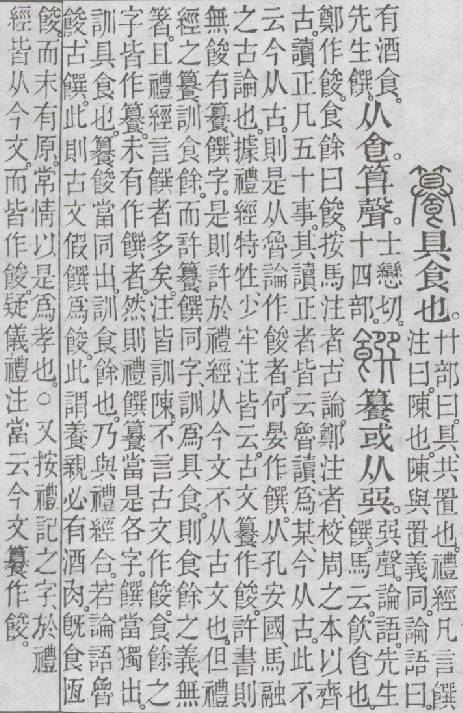 籑具食也。廾部曰。具、共置也。禮經凡言饌
注曰。陳也。陳與置義同。論語曰。
有酒食。
先生饌。
从食算聲。
士戀切。
十四部。
饌籑或从巽。
巽聲。論語。先生
饌。馬云。飮食也。
鄭作餕。食餘曰餕。按馬注者古論。鄭注者校周之本以齊
古。讀正凡五十事。其讀正者皆云魯讀爲某。今从古。此不
云今从古。則是从魯論作餕者。何晏作饌。从孔安國、馬融
之古論也。據禮經特牲少牢注皆云古文籑作餕。許書則
無餕有籑饌字。是則許於禮經从今文不从古文也。但禮
經之籑訓食餘。而許籑饌同字、訓爲具食。則食餘之義無
箸。且禮經言饌者多矣。注皆訓陳。不言古文作餕。食餘之
字皆作籑。未有作饌者。然則禮饌籑當是各字。饌當獨出。
訓具食也。籑餕當同出。訓食餘也。乃與禮經合。若論語魯
餕、古饌。此則古文假饌爲餕。此謂養親必有酒肉。旣食恆
餕。而未有原。常情以是爲孝也。○又按禮記之字、於禮
經皆从今文。而皆作餕。疑儀禮注當云今文籑作餕。